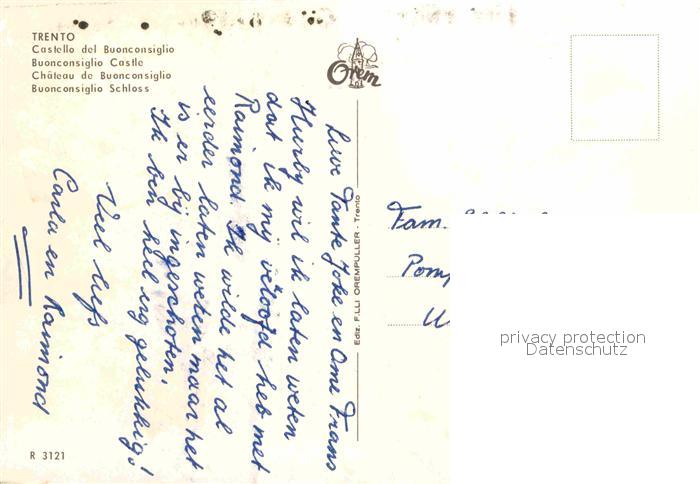 TRENTO
Castello del Buonconsiglio
Buonconsiglio Castle
Château de Buonconsiglio
Buonconsiglio Schloss
Orem
Lieve Tante Joke en Ome Frans
Hurby wil ik laten weten
dat ik mij verloofd heb met
Raimond. Ik wilde het al
eerder laten weten maar het
is er bij ingeschoten.
Ik ben heel erg gelukkig!
Veel liefs
Carla en Raimond
Ediz. F.LLI OREMPULLER - Trento
Fam.
R 3121
privacy protection
Datenschutz